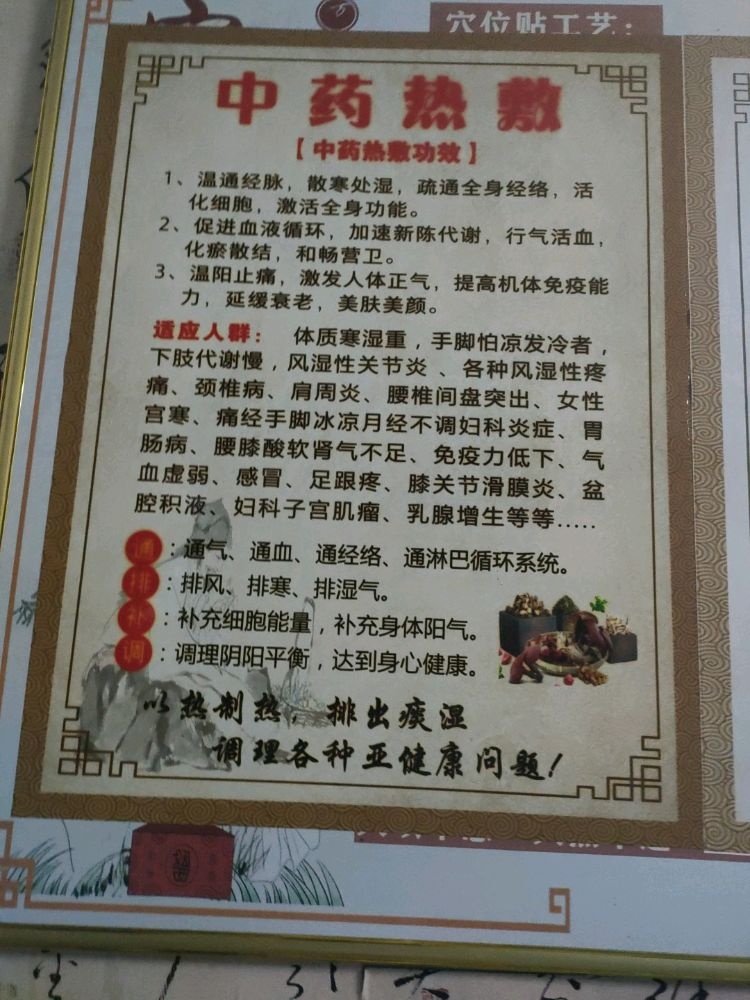 穴位贴工艺:
中药热敷
【中药热敷功效】
1、温通经脉，散寒处湿，疏通全身经络，活
化细胞，激活全身功能。
2、促进血液循环，加速新陈代谢，行气活血，
化瘀散结，和畅营卫。
3、温阳止痛，激发人体正气，提高机体免疫能
力，延缓衰老，美肤美颜。
适应人群： 体质寒湿重，手脚怕凉发冷者，
下肢代谢慢，风湿性关节炎 、各种风湿性疼
痛、颈椎病、肩周炎、腰椎间盘突出、女性
宫寒、痛经手脚冰凉月经不调妇科炎症、胃
肠病、腰膝酸软肾气不足、免疫力低下、气
血虚弱、感冒、足跟疼、膝关节滑膜炎、盆
腔积液、妇科子宫肌瘤、乳腺增生等等.....
通：通气、通血、通经络、通淋巴循环系统。
排：排风、排寒、排湿气。
补：补充细胞能量，补充身体阳气。
调：调理阴阳平衡，达到身心健康。
以热制热，排出痰湿
调理各种亚健康问题！